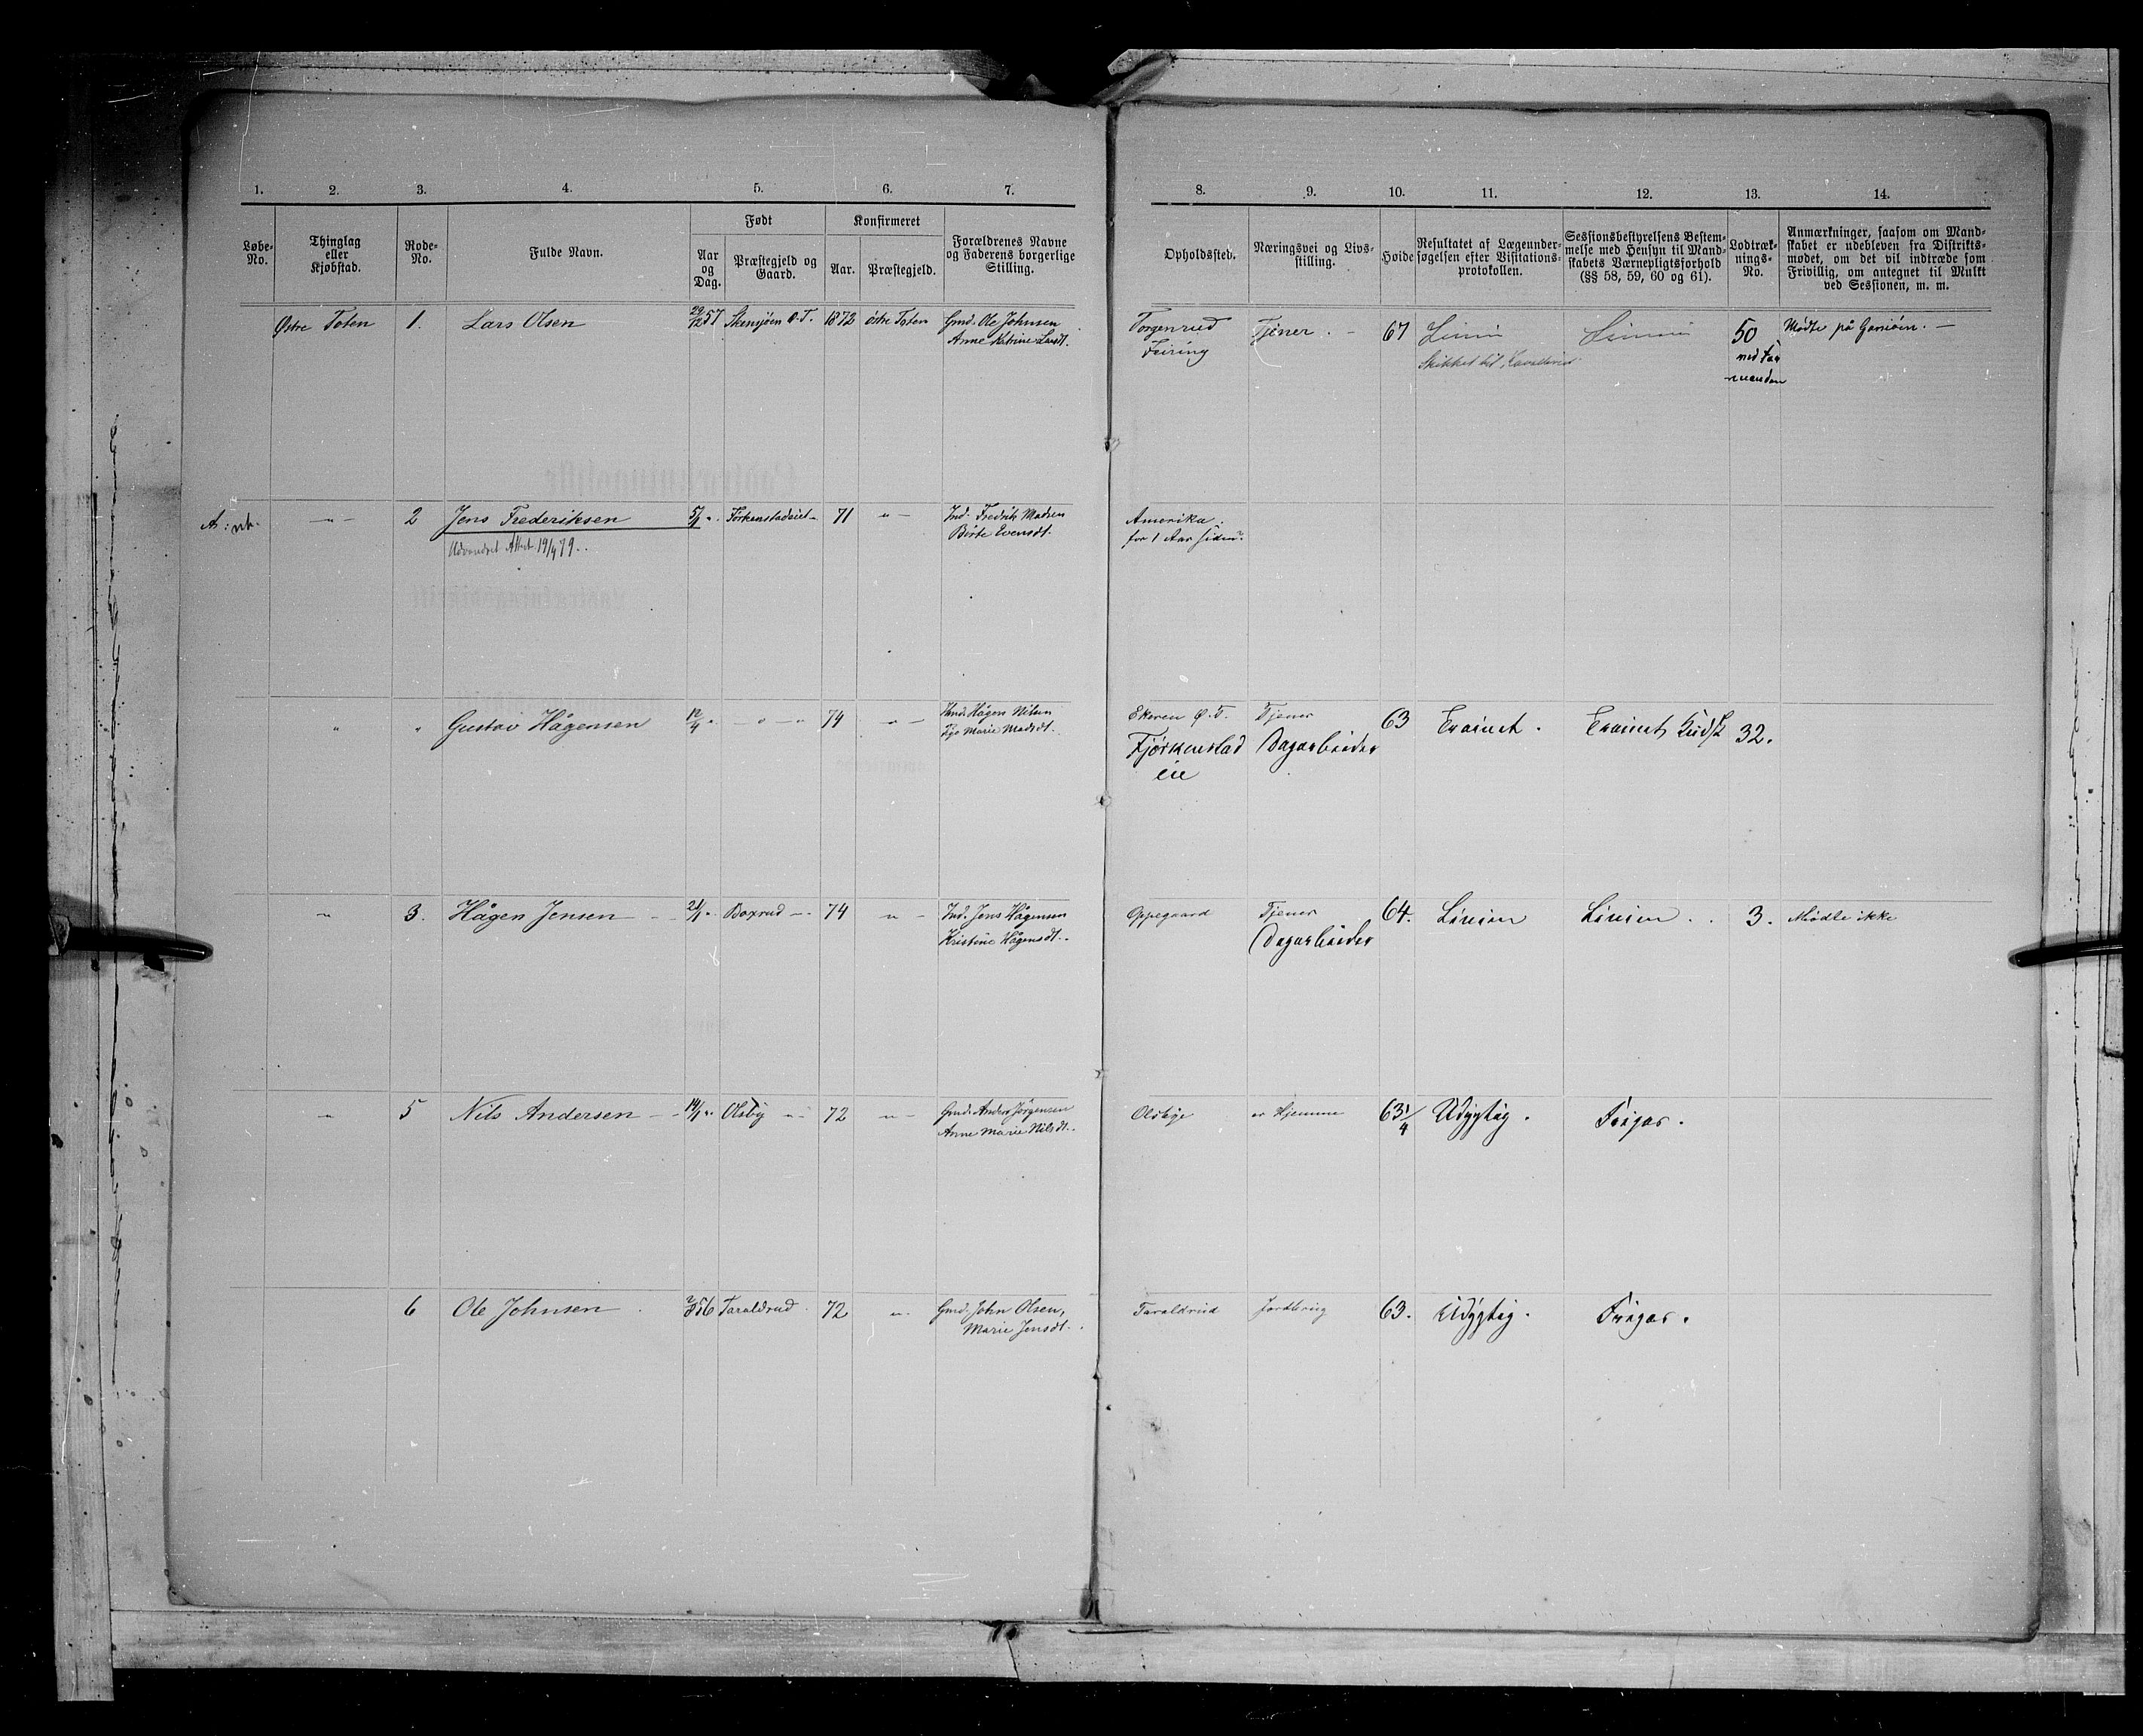 1. 2. 3. 4. 5. 6. 7.
Løbe-No. Thinglag eller Kjøbstad. Rode-No. Fulde Navn. Født Aar og Dag. Præstegjeld og Gaard. Konfirmeret Aar. Præstegjeld. Forældrenes Navne og Faderens borgerlige Stilling.
8. 9. 10. 11. 12. 13. 14.
Opholdssted. Næringsvei og Livsstilling. Høide Resultatet af Lægeundersøgelsen efter Visitationsprotokollen. Sessionsbestyrelsens Bestemmelse med Hensyn til Mandskabets Værnepligtsforhold (§§ 58, 59, 60 og 61). Lodtræknings-No. Anmærkninger, saasom om Mandskabet er udebleven fra Distriktsmødet, om det vil indtræde som Frivillig, om antegnet til Mulkt ved Sessionen, m. m.
Østre Toten 1. Lars Olsen 29/12 57 Skensjøen Ø.T. 1872 Østre Toten Gmd. Ole Johnsen
Anne Katrine Larsdt.
Torgenrud Tjener. - 67 Linien Linien 50 Mødte på
Feiring Skikket til Kavallerist
2 Jens Frederiksen 5/1 " Førkenstadeiet - 71 - " - Ind. Fredrik Madsen
Udvandret Attest 19/4 79.. Birte Evensdt.
Amerika
for 1 Aar siden?
" " Gustav Hågensen 12/4 " - " - 74 - " - Ind. Hågen Nilsen
Marie Madsdt.
Ekeren Ø.T. Tjener 63 Trainet. Trainet, Kudsk 32.
Fjørkenstad Dagarbeider
eie
- " - 3. Hågen Jensen - - 21/1 " Boxrud - " - 74 - " - Ind. Jens Hågensen
Kristine Hågensdt..
Oppegaard Tjener 64. Linien Linien. . 3. Mødte ikke
Dagarbeider
- " - 5 Nils Andersen - - 14/1 " Olsby - " - 72 - " - Gmd. Anders Jörgensen
Anne Marie Nilsdt..
Olsbye er Hjemme 63 1/4 Udygtig. Frigav.
6 Ole Johnsen 56 Taraldrud 72 - " - Gmd. John Olsen,
Marie Jensdt..
Taraldrud Jordbrug 63. Udygtig. Frigav.